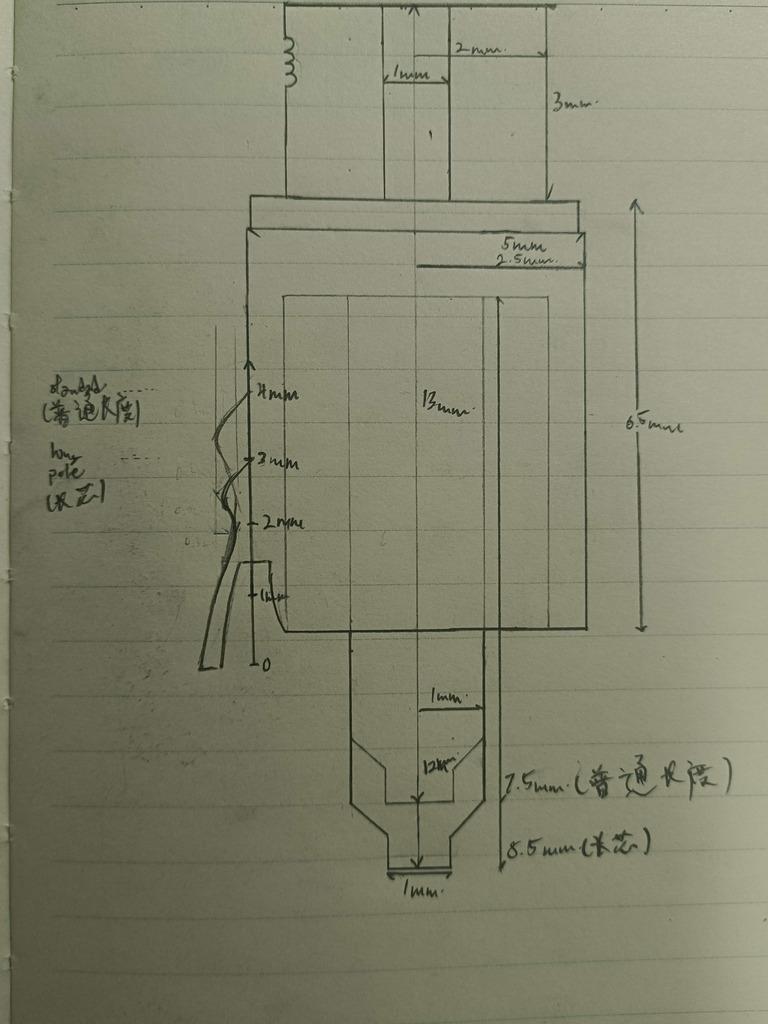 2mm.
1mm
3mm.
5mm
2.5mm.
4mm
13mm.
(普通长度)
6.5mm
long
pole
3mm
(长芯)
2mm
1mm
0
1mm.
12mm
7.5mm.(普通长度)
8.5mm.(长芯)
1mm.